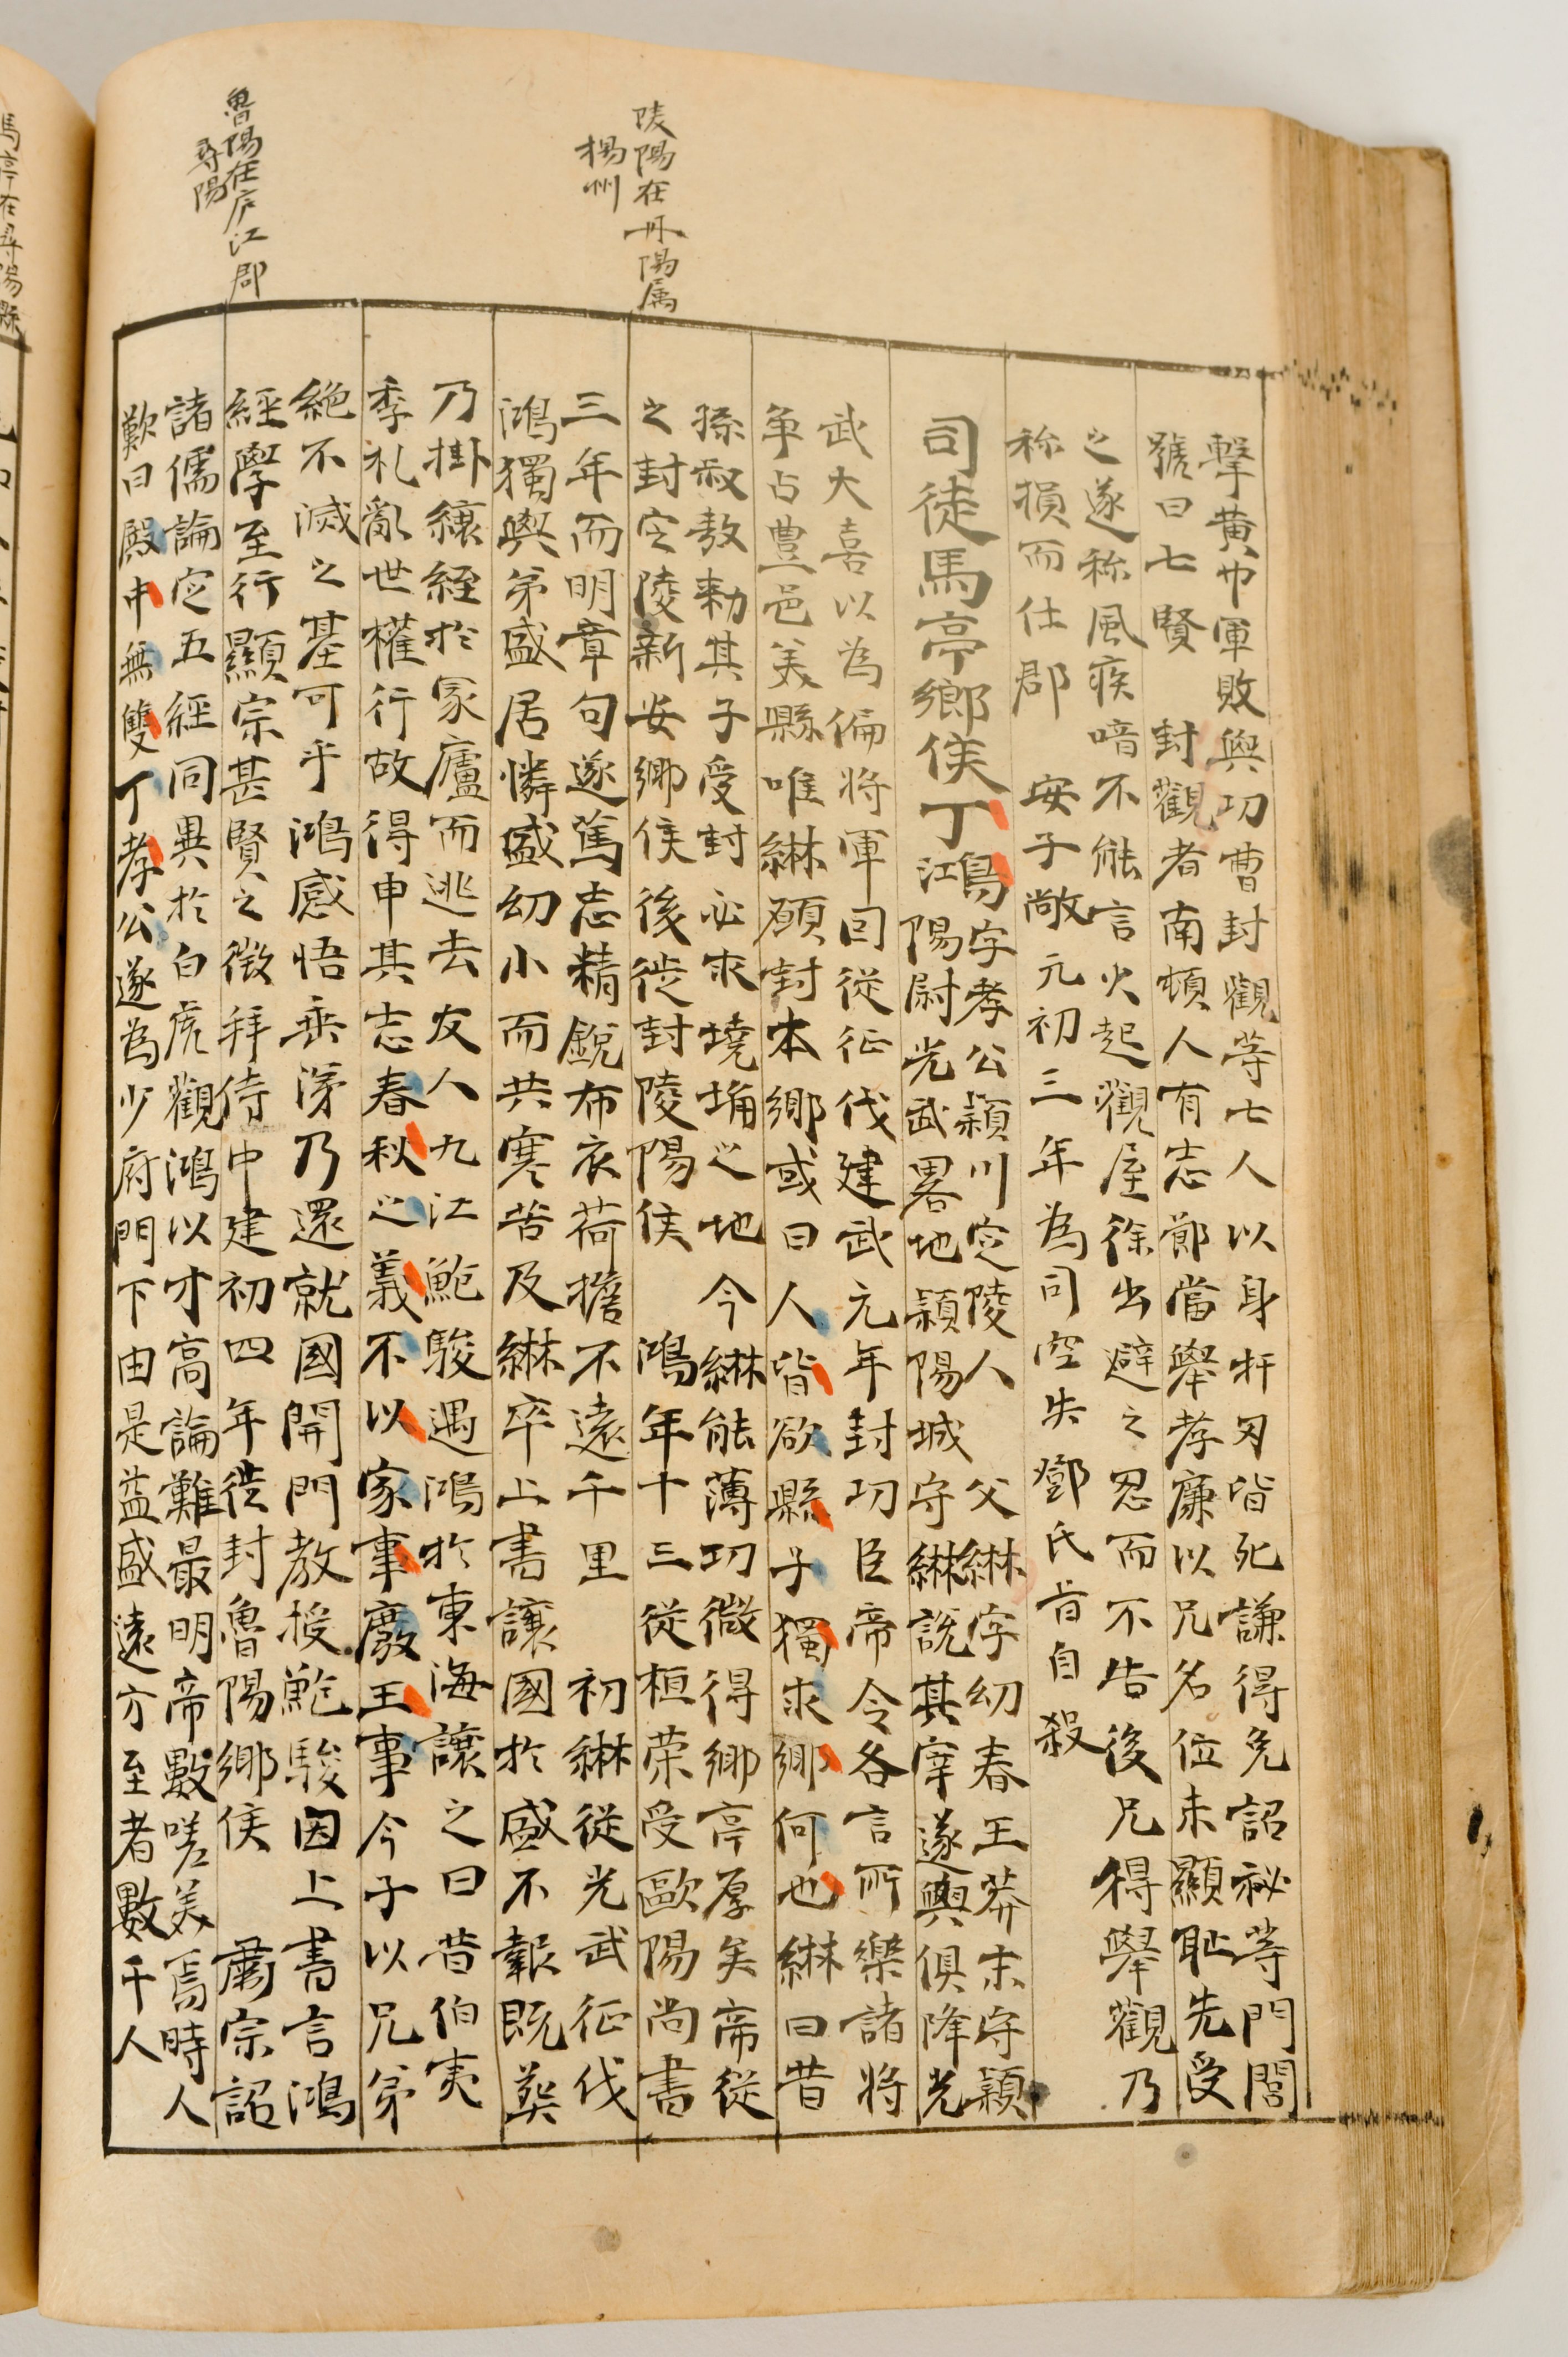 陵陽在丹陽属
楊州
魯陽在庐江郡
尋陽
擊黄巾軍敗與功曹封觀等七人以身扞刃皆死謙得免詔祕等門閭
號曰七賢　封觀者南頓人有志節當舉孝廉以兄名位未顯耻先受
之遂称風疾喑不能言火起觀屋徐出避之忍而不告後兄得舉觀乃
称損而仕郡　安子敞元初三年為司空失鄧氏旨自殺
司徒馬亭鄉侯丁鴻字孝公潁川定陵人　父綝字幼春王莽末守潁
陽尉光武畧地潁陽城守綝說其宰遂與俱降光
武大喜以為偏将軍因從征伐建武元年封功臣帝令各言所樂諸将
争占豊邑美縣唯綝願封本鄉或曰人皆欲縣子獨求鄉何也綝曰昔
孫叔敖勑其子受封必求墝埆之地今綝能薄功微得鄉亭厚矣帝從
之封定陵新安鄉侯後徙封陵陽侯　鴻年十三從桓荣受歐陽尚書
三年而明章句遂篤志精銳布衣荷擔不遠千里　初綝從光武征伐
鴻獨與弟盛居憐盛幼小而共寒苦及綝卒上書讓國於盛不報既葬
乃掛縗絰於冢廬而逃去友人九江鮑駿遇鴻於東海讓之曰昔伯夷
季札亂世權行故得申其志春秋之義不以家事廢王事今子以兄弟
絶不滅之基可乎鴻感悟垂涕乃還就國開門教授鮑駿因上書言鴻
經學至行顯宗甚賢之徵拜侍中建初四年徙封魯陽鄉侯　肅宗詔
諸儒論定五經同異於白虎觀鴻以才高論難最明帝數嗟美焉時人
歎曰殿中無雙丁孝公遂為少府門下由是益盛遠方至者數千人